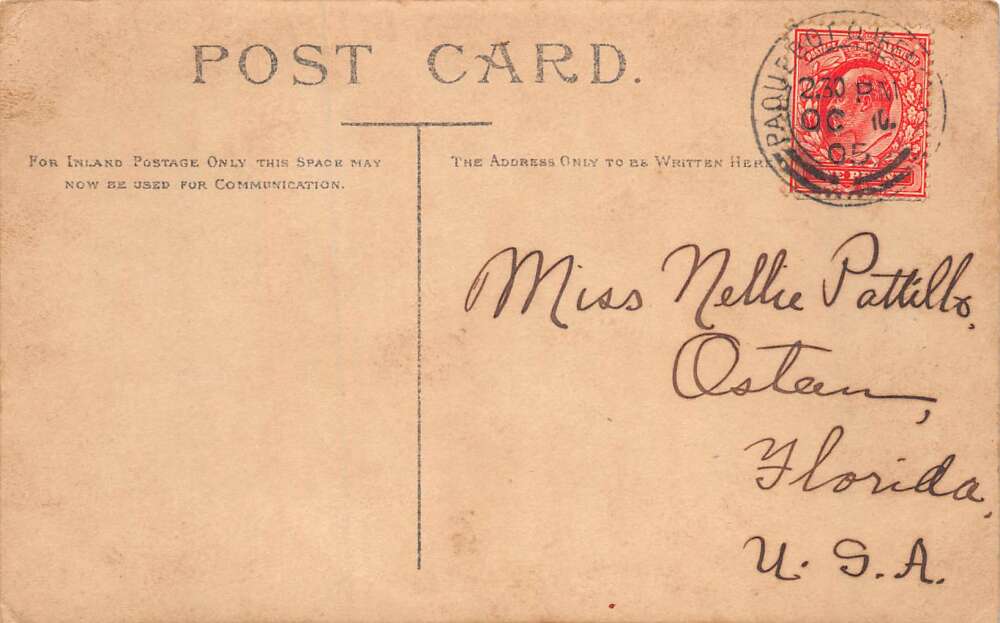 POST CARD.
FOR INLAND POSTAGE ONLY THIS SPACE MAY
NOW BE USED FOR COMMUNICATION.
THE ADDRESS ONLY TO BE WRITTEN HERE
2.30 PM
OC
05
Miss Nellie Pattillo,
Osteen,
Florida,
U.S.A.